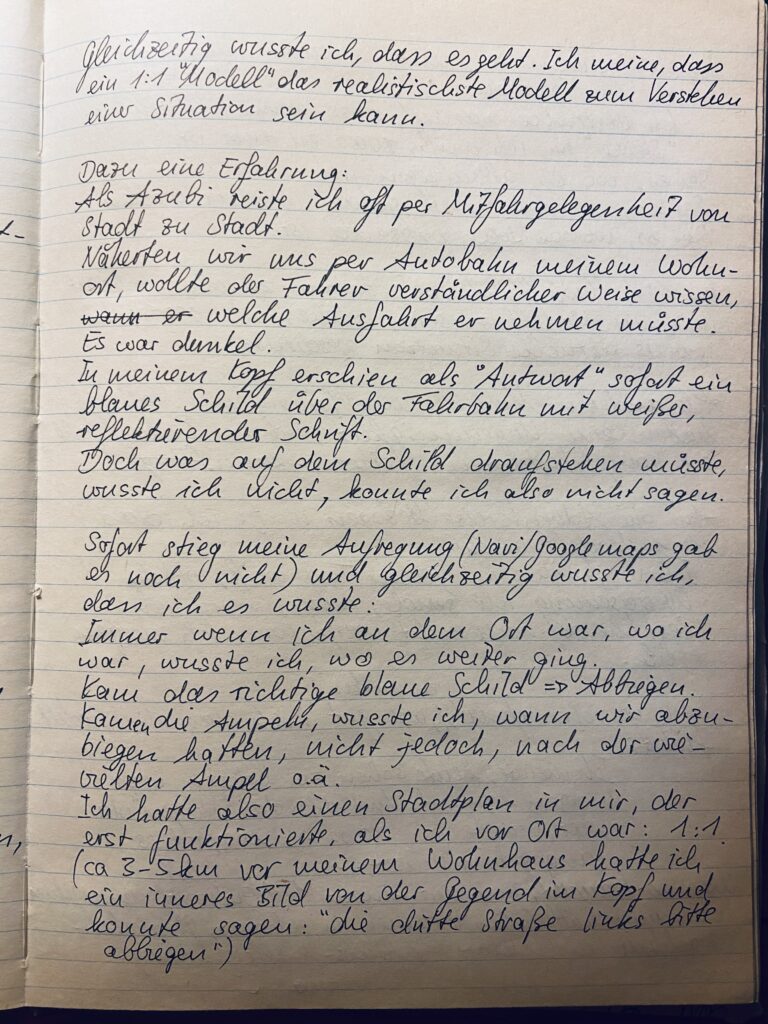 Gleichzeitig wusste ich, dass es geht. Ich meine, dass
ein 1:1 "Modell" das realistischste Modell zum Verstehen
einer Situation sein kann.
Dazu eine Erfahrung:
Als Azubi reiste ich oft per Mitfahrgelegenheit von
Stadt zu Stadt.
Näherten wir uns per Autobahn meinem Wohn-
ort, wollte der Fahrer verständlicher Weise wissen,
wann er welche Ausfahrt er nehmen müsste.
Es war dunkel.
In meinem Kopf erschien als "Antwort" sofort ein
blaues Schild über der Fahrbahn mit weißer,
reflektierender Schrift.
Doch was auf dem Schild draufstehen müsste,
wusste ich nicht, konnte ich also nicht sagen.
Sofort stieg meine Aufregung (Navi/Google maps gab
es noch nicht) und gleichzeitig wusste ich,
dass ich es wusste:
Immer wenn ich an dem Ort war, wo ich
war, wusste ich, wo es weiter ging.
Kam das richtige blaue Schild => Abbiegen.
Kamen die Ampeln, wusste ich, wann wir abzu-
biegen hatten, nicht jedoch, nach der wie-
vielten Ampel o.ä.
Ich hatte also einen Stadtplan in mir, der
erst funktionierte, als ich vor Ort war: 1:1.
(ca 3-5km vor meinem Wohnhaus hatte ich
ein inneres Bild von der Gegend im Kopf und
konnte sagen: "die dritte Straße links bitte
abbiegen")